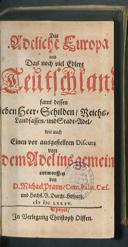 Das
Adeliche Europa
und
Das noch viel Edlere
Teutschland
samt dessen
sieben Heer-Schilden/Reichs-
Landsassen- und Stadt-Adel/
wie auch
Einen vor ausgesetzten Discurs
von
dem Adel ins gemein
entworffen
von
D. Michael Praun/Com. Palat. Cæs.
In Verlegung Christoph Olffen.